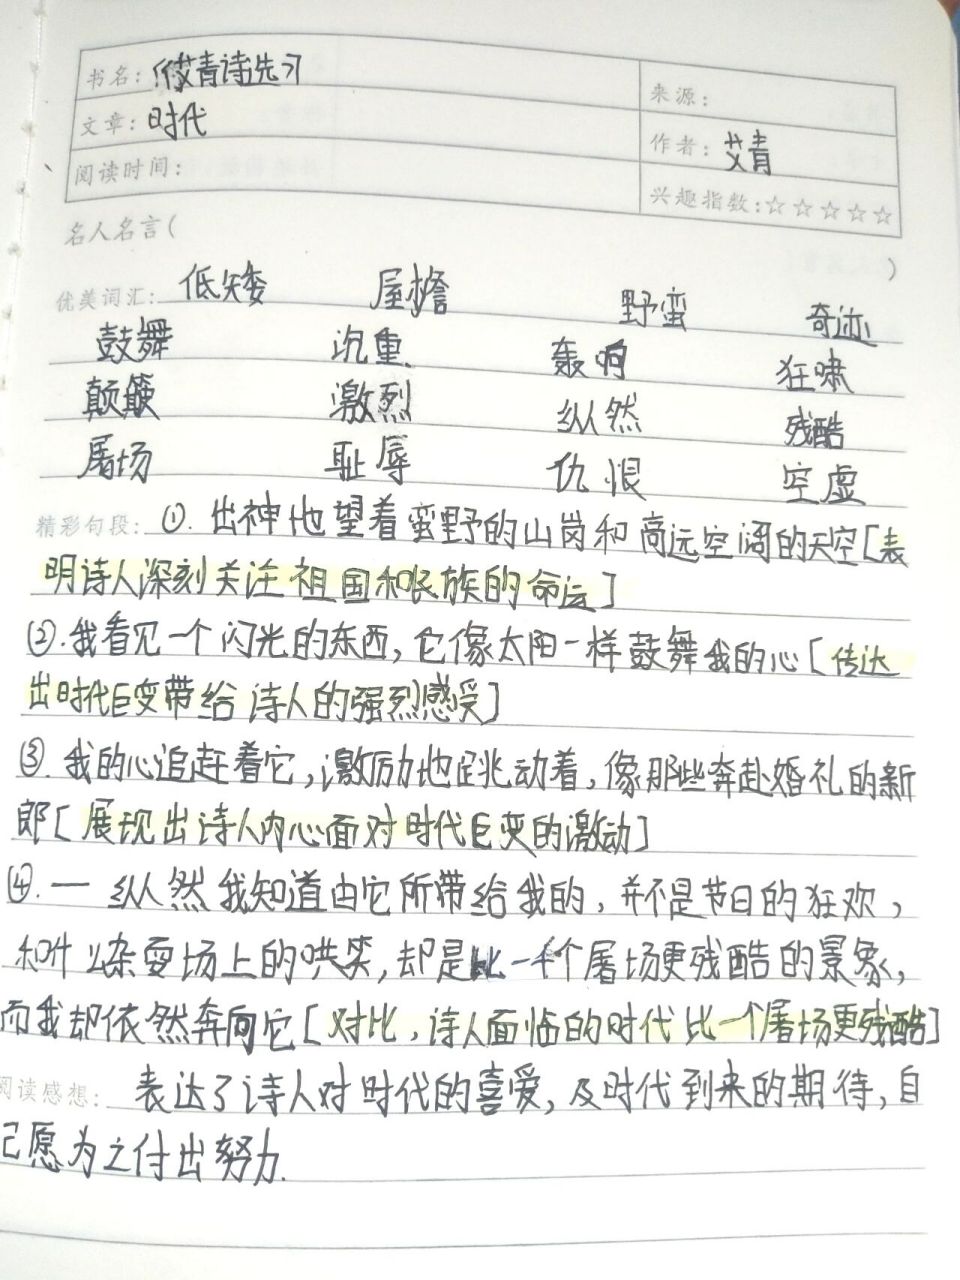 书名：《艾青诗选》
来源：
文章：时代
作者：艾青
阅读时间：
兴趣指数：☆☆☆☆☆
名人名言（ ）
优美词汇：低矮 屋檐 野蛮 奇迹
鼓舞 沉重 轰响 狂啸
颠簸 激烈 纵然 残酷
屠场 耻辱 仇恨 空虚
精彩句段：①．出神地望着蛮野的山岗和高远空阔的天空[表
明诗人深刻关注祖国和民族的命运]
②．我看见一个闪光的东西，它像太阳一样鼓舞我的心[传达
出时代巨变带给诗人的强烈感受]
③．我的心追赶着它，激励地跳动着，像那些奔赴婚礼的新
郎[展现出诗人内心面对时代巨变的激动]
④．— 纵然我知道由它所带给我的，并不是节日的狂欢，
和什么杂耍场上的哄笑，却是比一个屠场更残酷的景象，
而我却依然奔向它[对比，诗人面临的时代比一个屠场更残酷]
阅读感想：表达了诗人对时代的喜爱，及时代到来的期待，自
己愿为之付出努力．